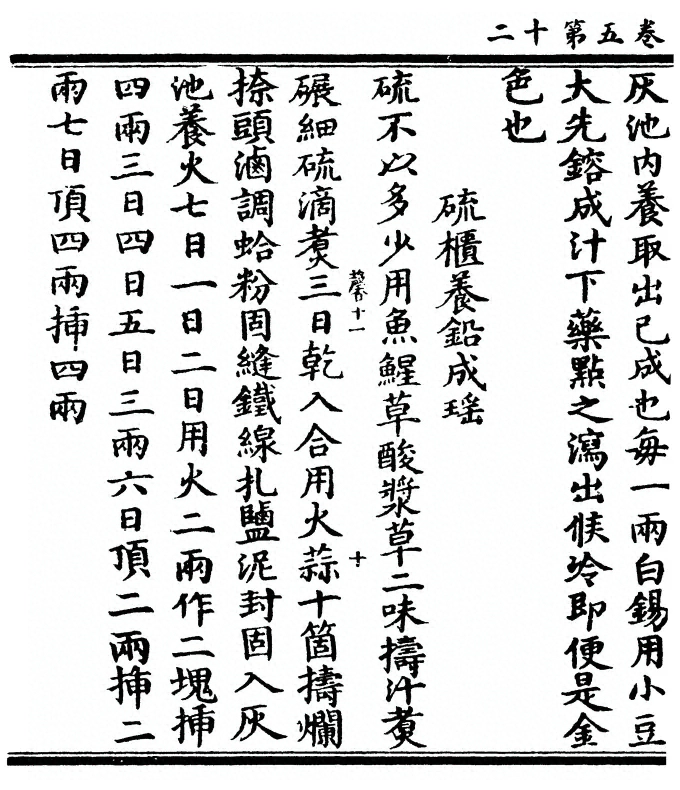 卷五第十二
灰池内養取出已成也每一兩白錫用小豆
大先鎔成汁下藥點之瀉出候冷即便是金
色也
硫櫃養鉛成瑶
硫不以多少用魚鯹草酸漿草二味擣汁煑
碾細硫滴煑三日乾入合用火蒜十箇擣爛
捺頭滷調蛤粉固縫鐵線扎鹽泥封固入灰
池養火七日一日二日用火二兩作二塊揷
四兩三日四日五日三兩六日頂二兩揷二
兩七日頂四兩揷四兩
十一
十